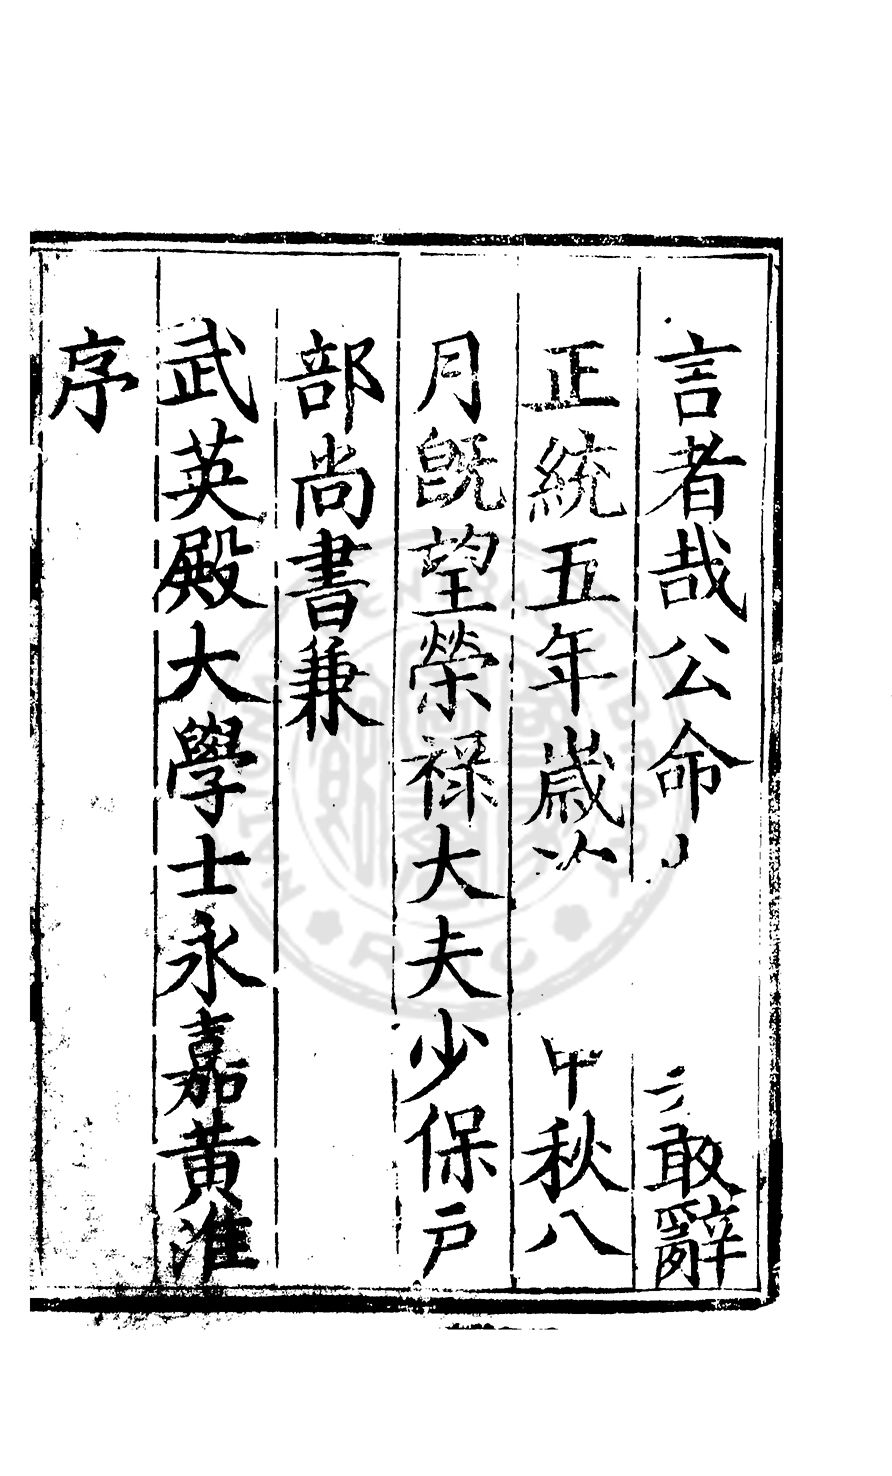 言者哉公命敢辭
正統五年歲次秋八
月既望榮禄大夫少保戶
部尚書兼
武英殿大學士永嘉黃淮
序